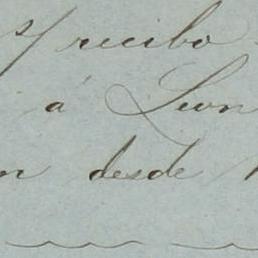 s/ recibo
á Leon
n desde